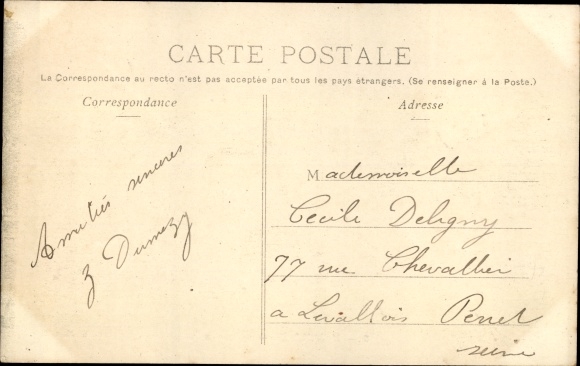 CARTE POSTALE
La Correspondance au recto n'est pas acceptée par tous les pays étrangers. (Se renseigner à la Poste.)
Correspondance
Amitiés sincères
Z Dumezy
Adresse
Mademoiselle
Cecile Deligny
77 rue Chevallier
a Levallois Perret
seine